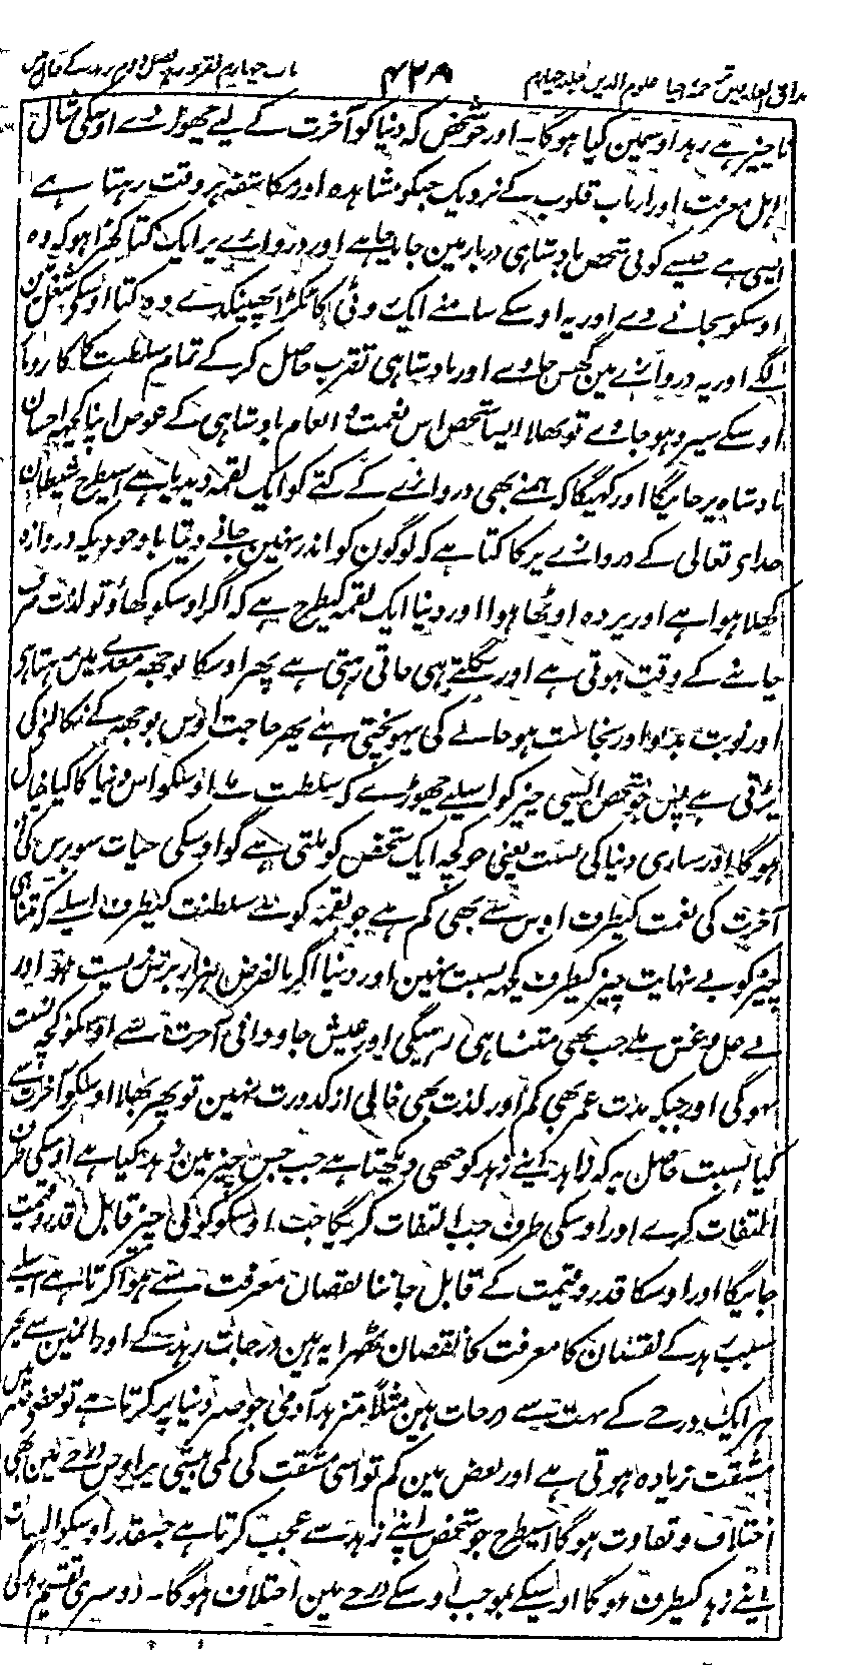 مذاق العارفین ترجمہ احیا علوم الدین جلد چہارم ۴۲۸ باب چہارم فقر و زہد فصل دوم زہد کے بیان میں
ناچیز ہے زہد اوسمین کیا ہوگا۔ اور جو شخص کہ دنیا کو آخرت کے لیے چھوڑ دے اوسکی مثال
اہل معرفت اور ارباب قلوب کے نزدیک جنکو مشاہدہ اور مکاشفہ ہر وقت رہتا ہے
ایسی ہے جیسے کوئی شخص بادشاہی دربار مین جانا چاہے اور دروازے پر ایک کتا کھڑا ہو کہ وہ
اوسکو نجانے دے اور یہ اوسکے سامنے ایک روٹی کا ٹکڑا پھینکدے وہ کتا اوسکے شغل مین
لگے اور یہ دروازے مین گھس جاوے اور بادشاہی تقرب حاصل کر کے تمام سلطنت کا کاروبار
اوسکے سپرد ہو جاوے تو بھلا ایسا شخص اس نعمت و انعام بادشاہی کے عوض اپنا کچھہ احسان
بادشاہ پر جانیگا اور کہیگا کہ ہمنے بھی دروازے کے کتے کو ایک لقمہ دیدیا ہے اسیطرح شیطان
خدای تعالی کے دروازے پر کا کتا ہے کہ لوگون کو اندر نہین جانے دیتا باوجودیکہ دروازہ
کھلا ہوا ہے اور پردہ اوٹھا ہوا اور دنیا ایک لقمہ کیطرح ہے کہ اگر اوسکو کھاؤ تو لذت صرف
چبانے کے وقت ہوتی ہے اور نگلتے ہی جاتی رہتی ہے پھر اوسکا بوجھہ معدے مین رہتا ہے
اور نوبت بدبو اور نجاست ہو جانے کی پہونچتی ہے پھر حاجت اوس بوجھہ کے نکالنے کی
پڑتی ہے پس جو شخص ایسی چیز کو اسلیے چھوڑے کہ سلطنت ملے اوسکو اس دنیا کا کیا خیال
ہوگا اور ساری دنیا کی نسبت یعنی جو کچھ ایک شخص کو ملتی ہے گو اوسکی حیات سو برس کی
آخرت کی نعمت کیطرف اوس سے بھی کم ہے جو لقمہ کو ہے سلطنت کیطرف اسلیے کہ متناہی
چیز کو بے نہایت چیز کیطرف کچھہ نسبت نہین اور دنیا اگر بالفرض ہزار برس زیست ہو اور
بے غل و غش ملے جب بھی متناہی رہیگی اور عیش جاودانی آخرت سے اوسکو کچھ نسبت
نہوگی اور جبکہ مدت عمر بھی کم اور لذت بھی خالی از کدورت نہین تو پھر بھلا اوسکو آخرت سے
کیا نسبت حاصل یہ کہ زاہد اپنے زہد کو جبھی دیکھتا ہے جب جس چیز مین زہد کیا ہے اوسکی طرف
التفات کرے اور اوسکی طرف جب التفات کریگا جب اوسکو کوئی چیز قابل قدر و قیمت
جانیگا اور اوسکا قدر و قیمت کے قابل جاننا نقصان معرفت سے ہوا کرتا ہے اسلیے
سبب زہد کے نقصان کا معرفت کا نقصان ٹھہرا یہ ہین درجات زہد کے اور انمین سے پھر
ہر ایک درجے کے بہت سے درجات ہین مثلا متزہد آدمی جو صبر دنیا پر کرتا ہے تو بعض مین
مشقت زیادہ ہوتی ہے اور بعض مین کم تو اسی مشقت کی کمی بیشی پر اوس درجے مین بھی
اختلاف و تفاوت ہوگا اسیطرح جو شخص اپنے زہد سے عجب کرتا ہے جسقدر اوسکو التفات
اپنے زہد کیطرف ہوگا اوسیکے بموجب اوسکے درجے مین اختلاف ہوگا۔ دوسری تقسیم زہد کی